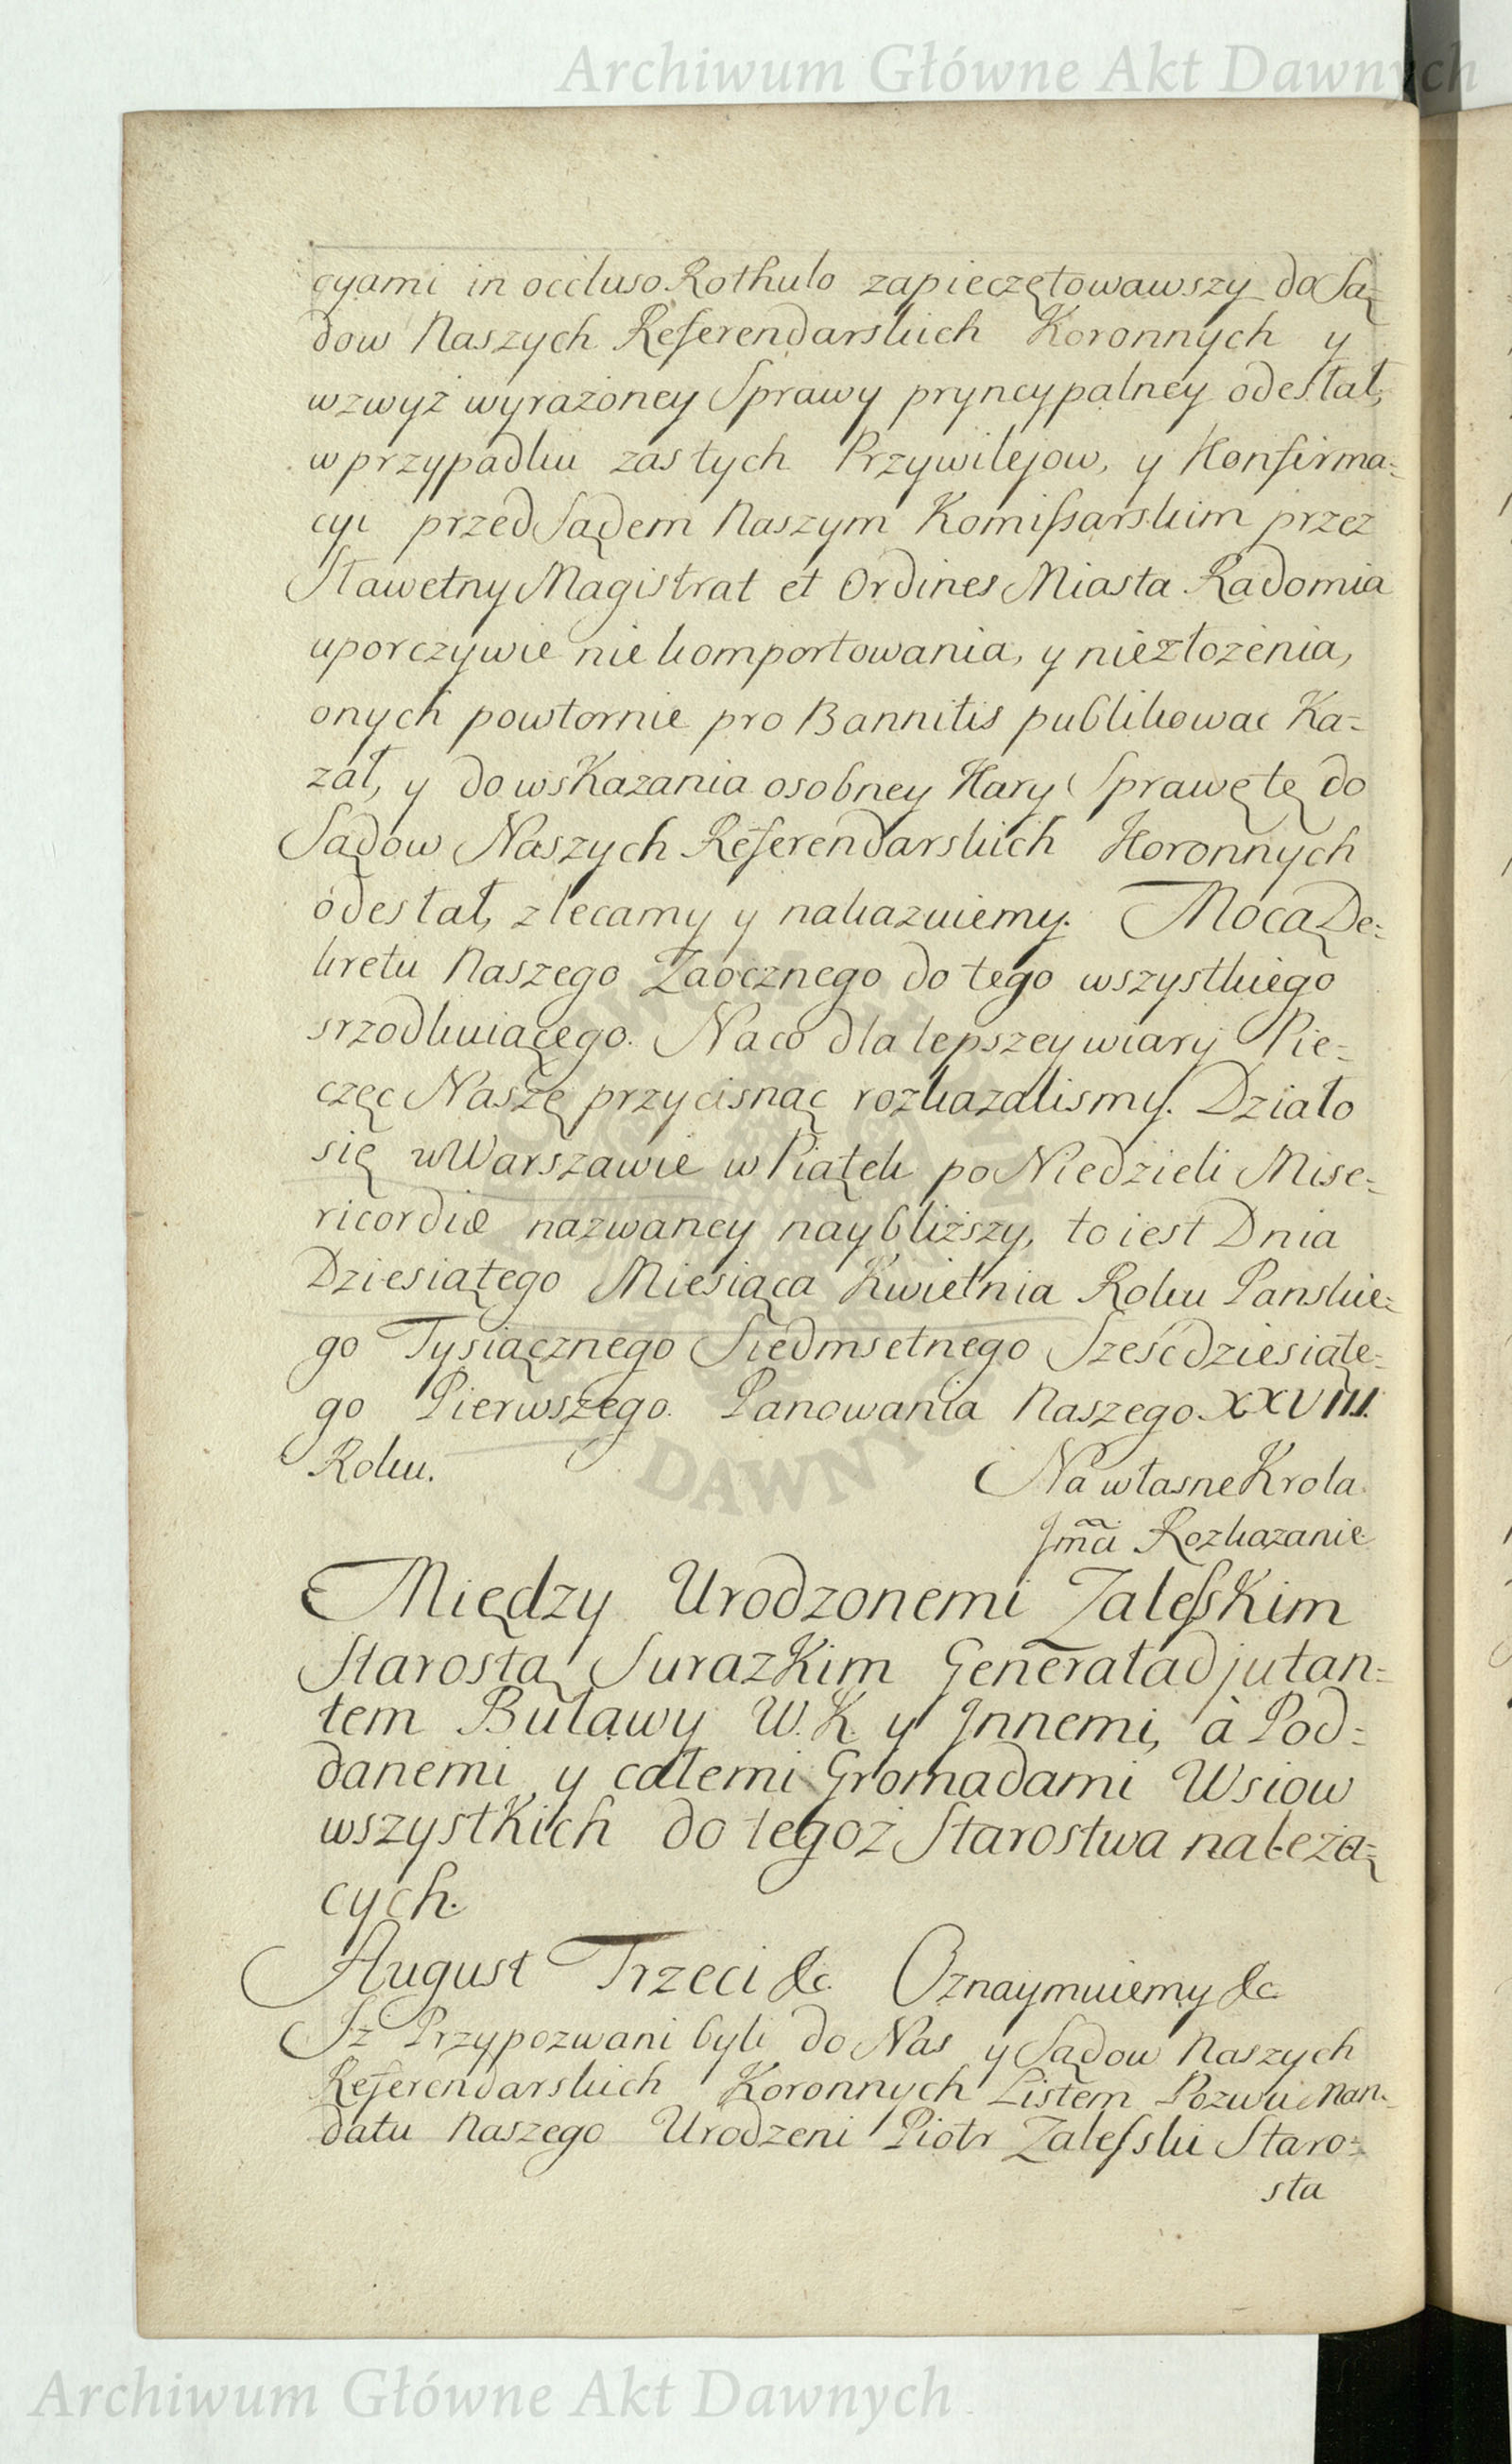 Archiwum Główne Akt Dawnych
cyami in occluso Rothulo zapieczętowawszy do Są=
dow Naszych Referendarskich Koronnych y
wzwyż wyrażoney Sprawy pryncypalney odesłał,
w przypadku zas tych Przywilejow, y Konfirma=
cyi przed Sądem Naszym Komissarskim przez
Sławetny Magistrat et Ordines Miasta Radomia
uporczywie nie komportowania, y niezłożenia,
onych powtornie pro Bannitis publikować Ka=
zał, y do wskazania osobney Kary Sprawę tę do
Sądow Naszych Referendarskich Koronnych
odesłał, zlecamy y nakazuiemy. Mocą De=
kretu Naszego Zaocznego do tego wszystkiego
srzodkuiącego. Na co dla lepszey wiary Pie=
częc Naszę przycisnąc rozkazalismy. Działo
się w Warszawie w Piątek po Niedzieli Mise=
ricordiæ nazwaney naybliższy, to iest Dnia
Dziesiątego Miesiąca Kwietnia Roku Panskie=
go Tysiącznego Siedmsetnego Sześćdziesiąte=
go Pierwszego. Panowania Naszego XXVIII.
Roku.
Na własne Krola
Jmci Rozkazanie
Między Urodzonemi Zalesskim
Starostą Surazkim Generaładjutan=
tem Buławy W. K. y Jnnemi, à Pod=
danemi y całemi Gromadami Wsiow
wszystkich do tegoż Starostwa należą=
cych.
August Trzeci &c. Oznaymuiemy &c
Jż Przypozwani byli do Nas y Sądow Naszych
Referendarskich Koronnych Listem Pozwu Man=
datu Naszego Urodzeni Piotr Zalesski Staro=
sta
Archiwum Główne Akt Dawnych